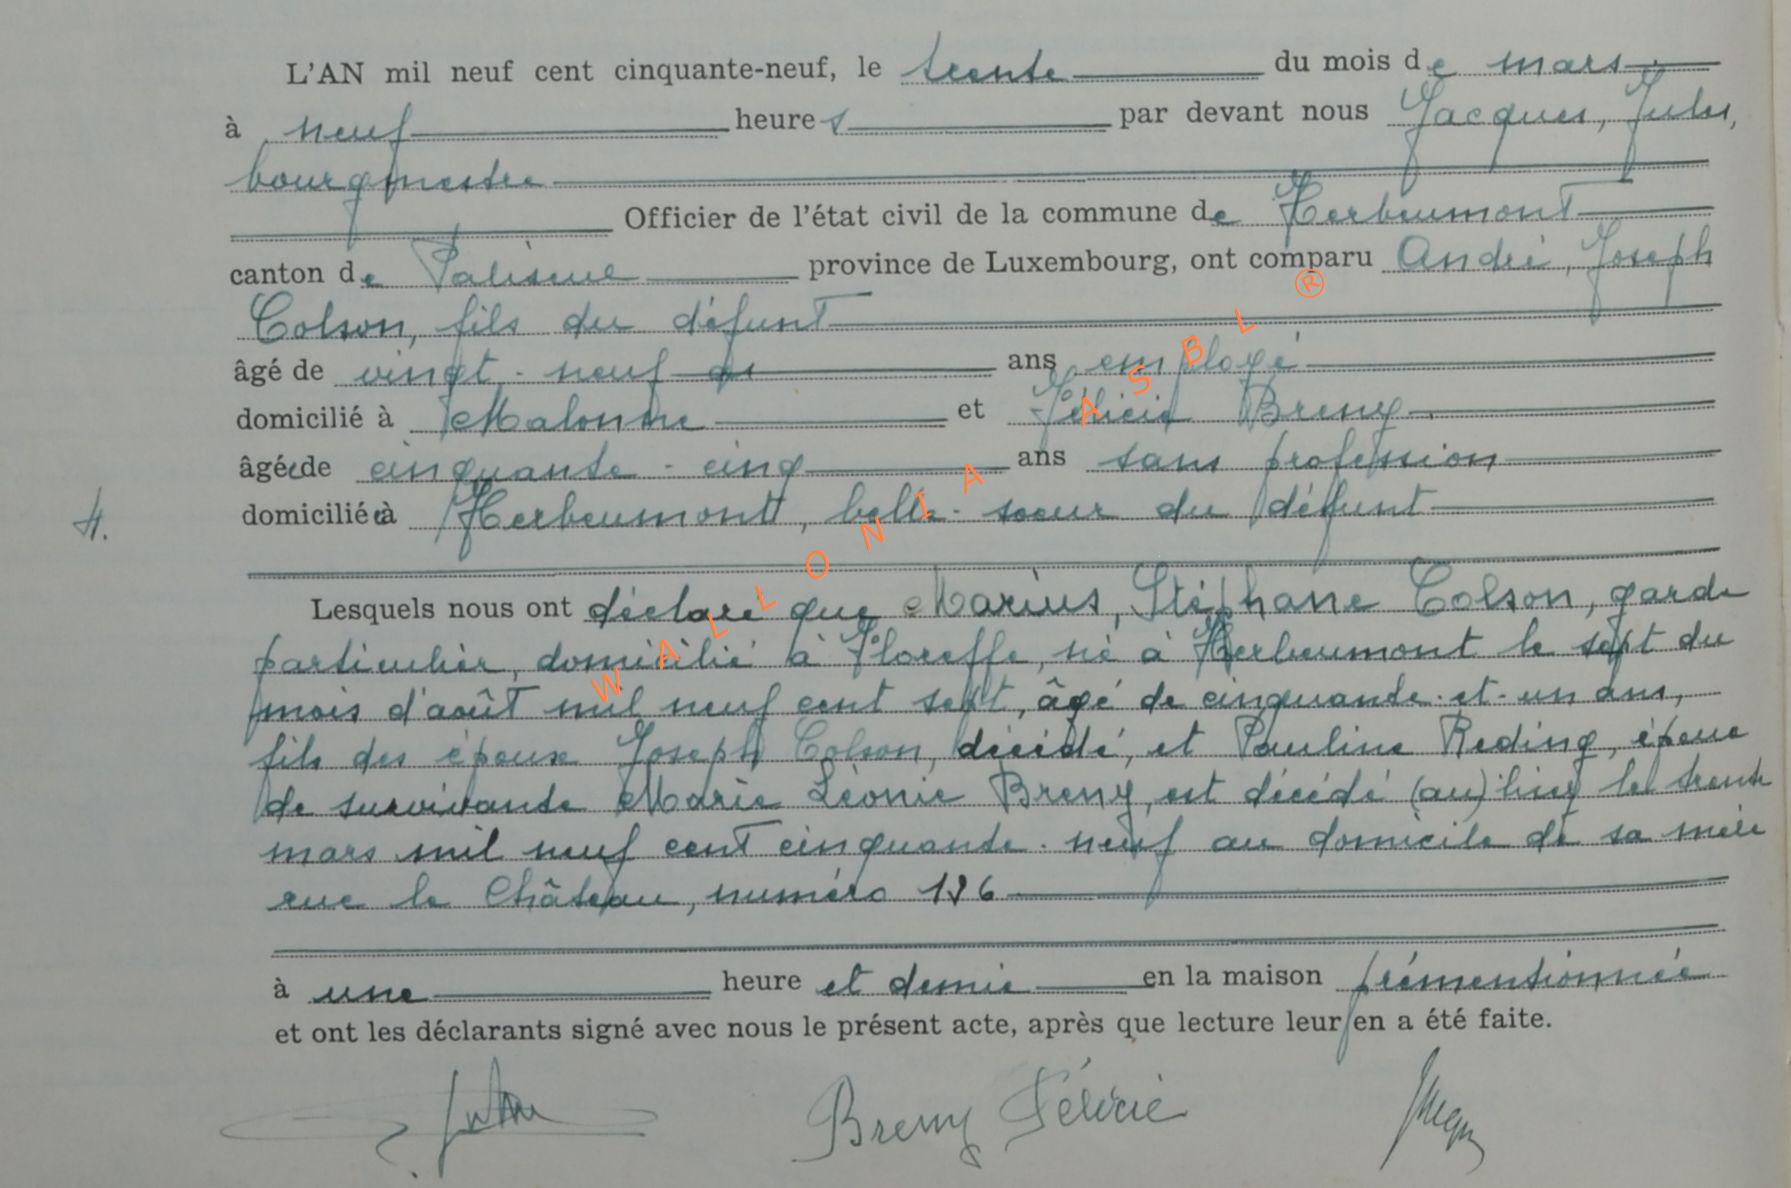 L'AN mil neuf cent cinquante-neuf, le trente du mois de mars
à neuf heures par devant nous Jacques, Jules,
bourgmestre
Officier de l'état civil de la commune de Herbeumont
canton de Paliseul province de Luxembourg, ont comparu André, Joseph
Colson, fils du défunt
âgé de vingt-neuf ans employé
domicilié à Malonne et Félicie Breny
âgée de cinquante-cinq ans sans profession
domiciliée à Herbeumont, belle-soeur du défunt
4.
Lesquels nous ont déclaré que Marius, Stéphane Colson, garde
particulier, domicilié à Floreffe, né à Herbeumont le sept du
mois d'août mil neuf cent sept, âgé de cinquante-et-un ans,
fils des époux Joseph Colson, décédé, et Pauline Reding, époux
de survivante Marie Léonie Breny, est décédé (au) lieu le trente
mars mil neuf cent cinquante-neuf au domicile de sa mère
rue le Château, numéro 126
à une heure et demie en la maison prémentionnée
et ont les déclarants signé avec nous le présent acte, après que lecture leur en a été faite.
Breny Félicie
WALLONIA ASBL ®